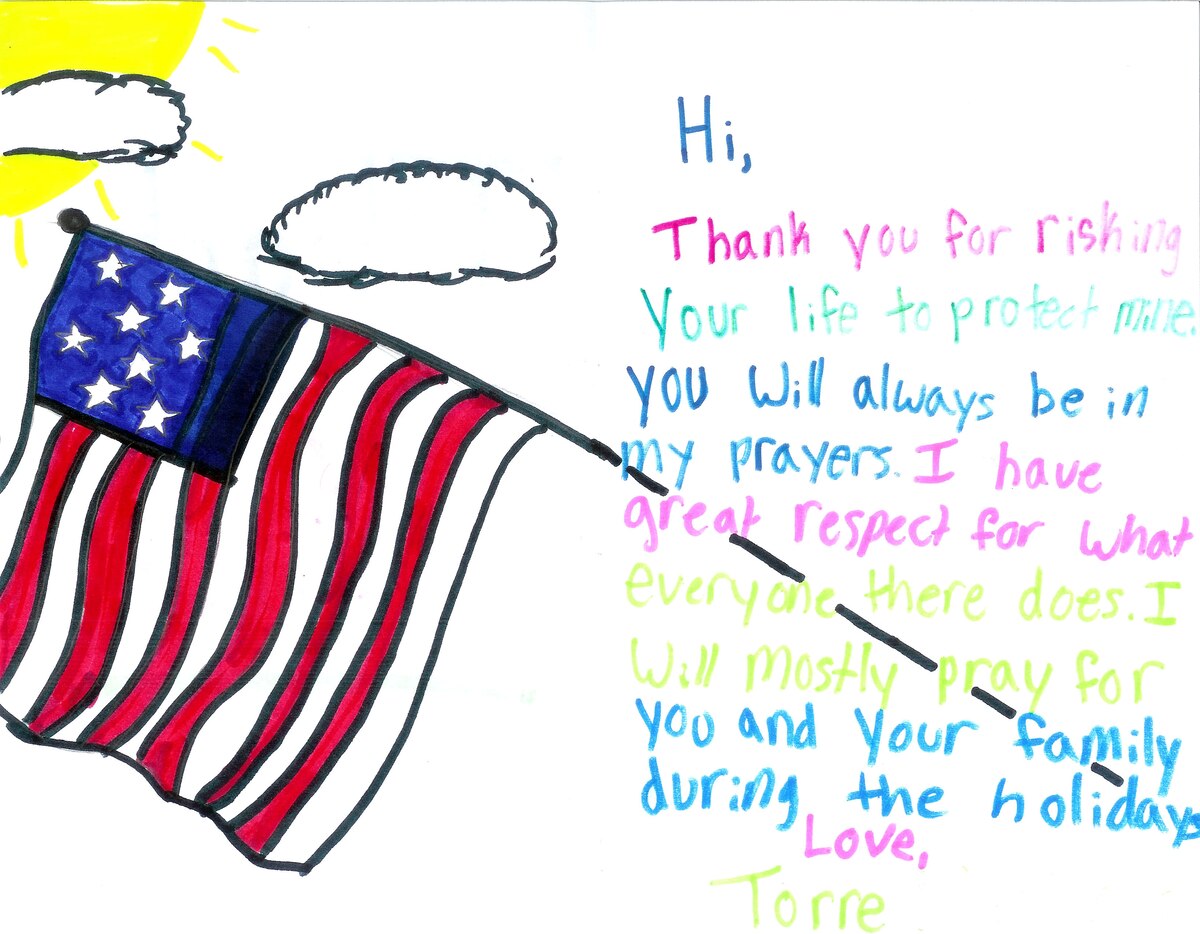 Hi,
Thank you for risking
Your life to protect mine.
you will always be in
my prayers. I have
great respect for what
everyone there does. I
Will mostly pray for
you and your family
during the holidays
Love,
Torre